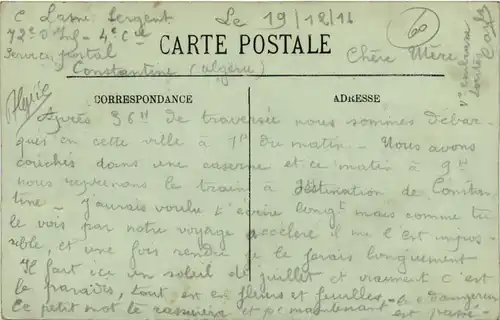 C Lame Sergent
Le 19/12/16
72e - 4e Cie
Service postal
Constantine (Algérie)
60
CARTE POSTALE
Chère Mère
Je embrasse
toutes
Algérie
CORRESPONDANCE
ADRESSE
Après 36H de traversée nous sommes débar-
qués en cette ville à 1H du matin - Nous avons
couchés dans une caserne et ce matin à 9H
nous reprenons le train à destination de Constan
tine - J'aurais voulu t'écrire longt mais comme tu
le vois par notre voyage accéléré il me l'est impos-
sible, et une fois rendu je le ferais longuement
Il fait ici un soleil de juillet et vraiment c'est
le paradis, tout est en fleurs et feuilles,
Ce petit mot te rassurera et pr maintenant
le dangereux
est passé